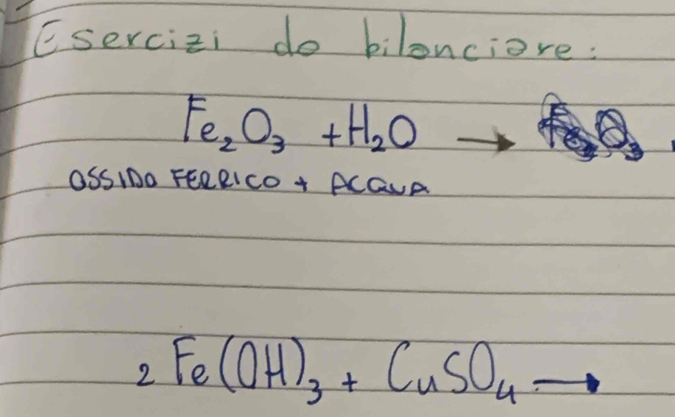 Esercizi da bilanciare:
Fe₂O₃ + H₂O →
OSSIDO FERRICO + ACQUA
2 Fe(OH)₃ + CuSO₄ →